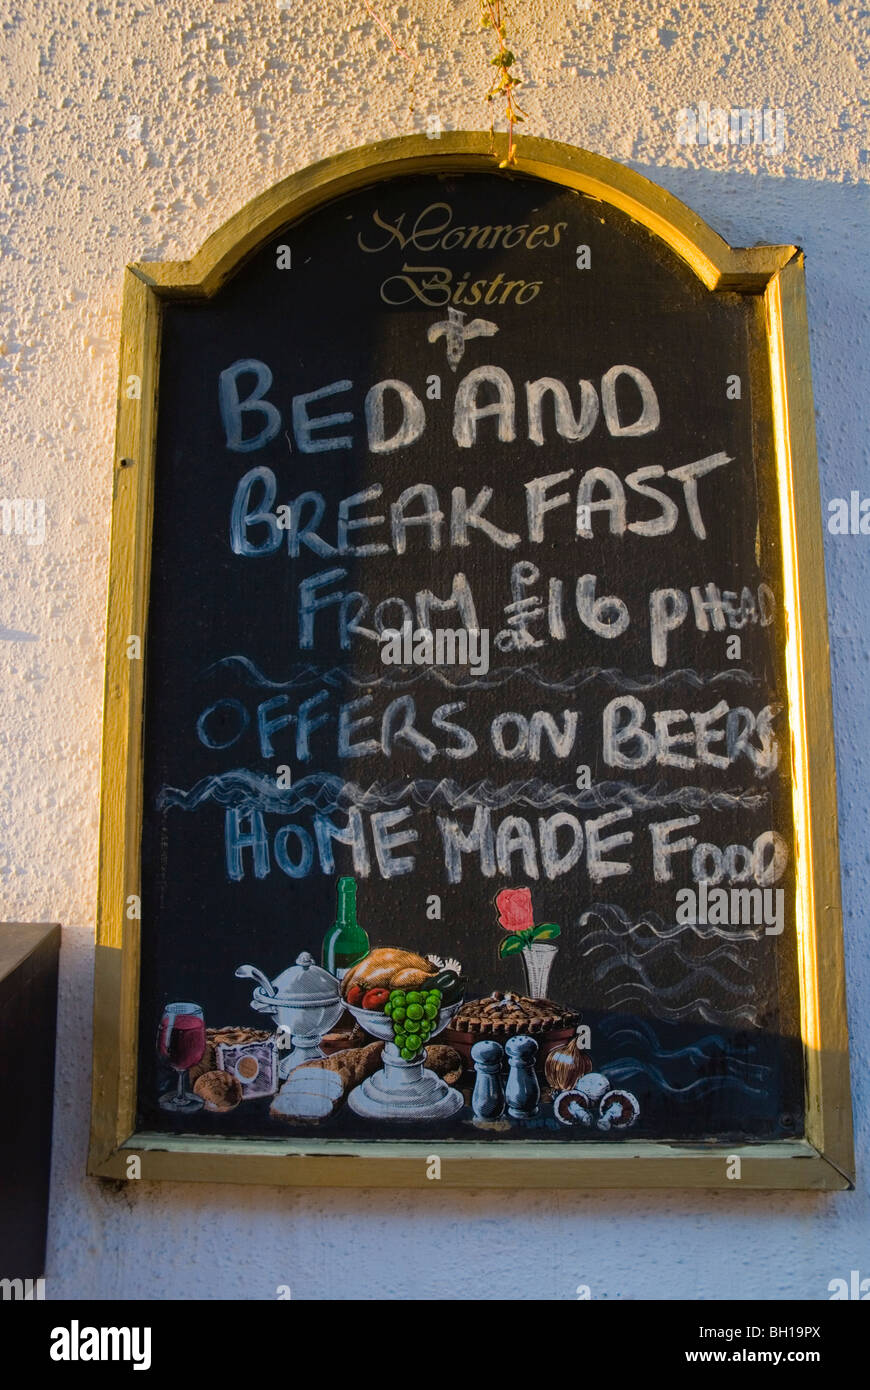 Monroes
Bistro
BED AND
BREAKFAST
FROM £16 pHEAD
OFFERS ON BEERS
HOME MADE FOOD
alamy
Image ID: BH19PX
www.alamy.com